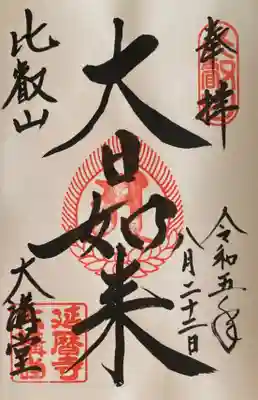 奉拝
令和五年
八月二十二日
大日如来
比叡山
大講堂
延暦寺